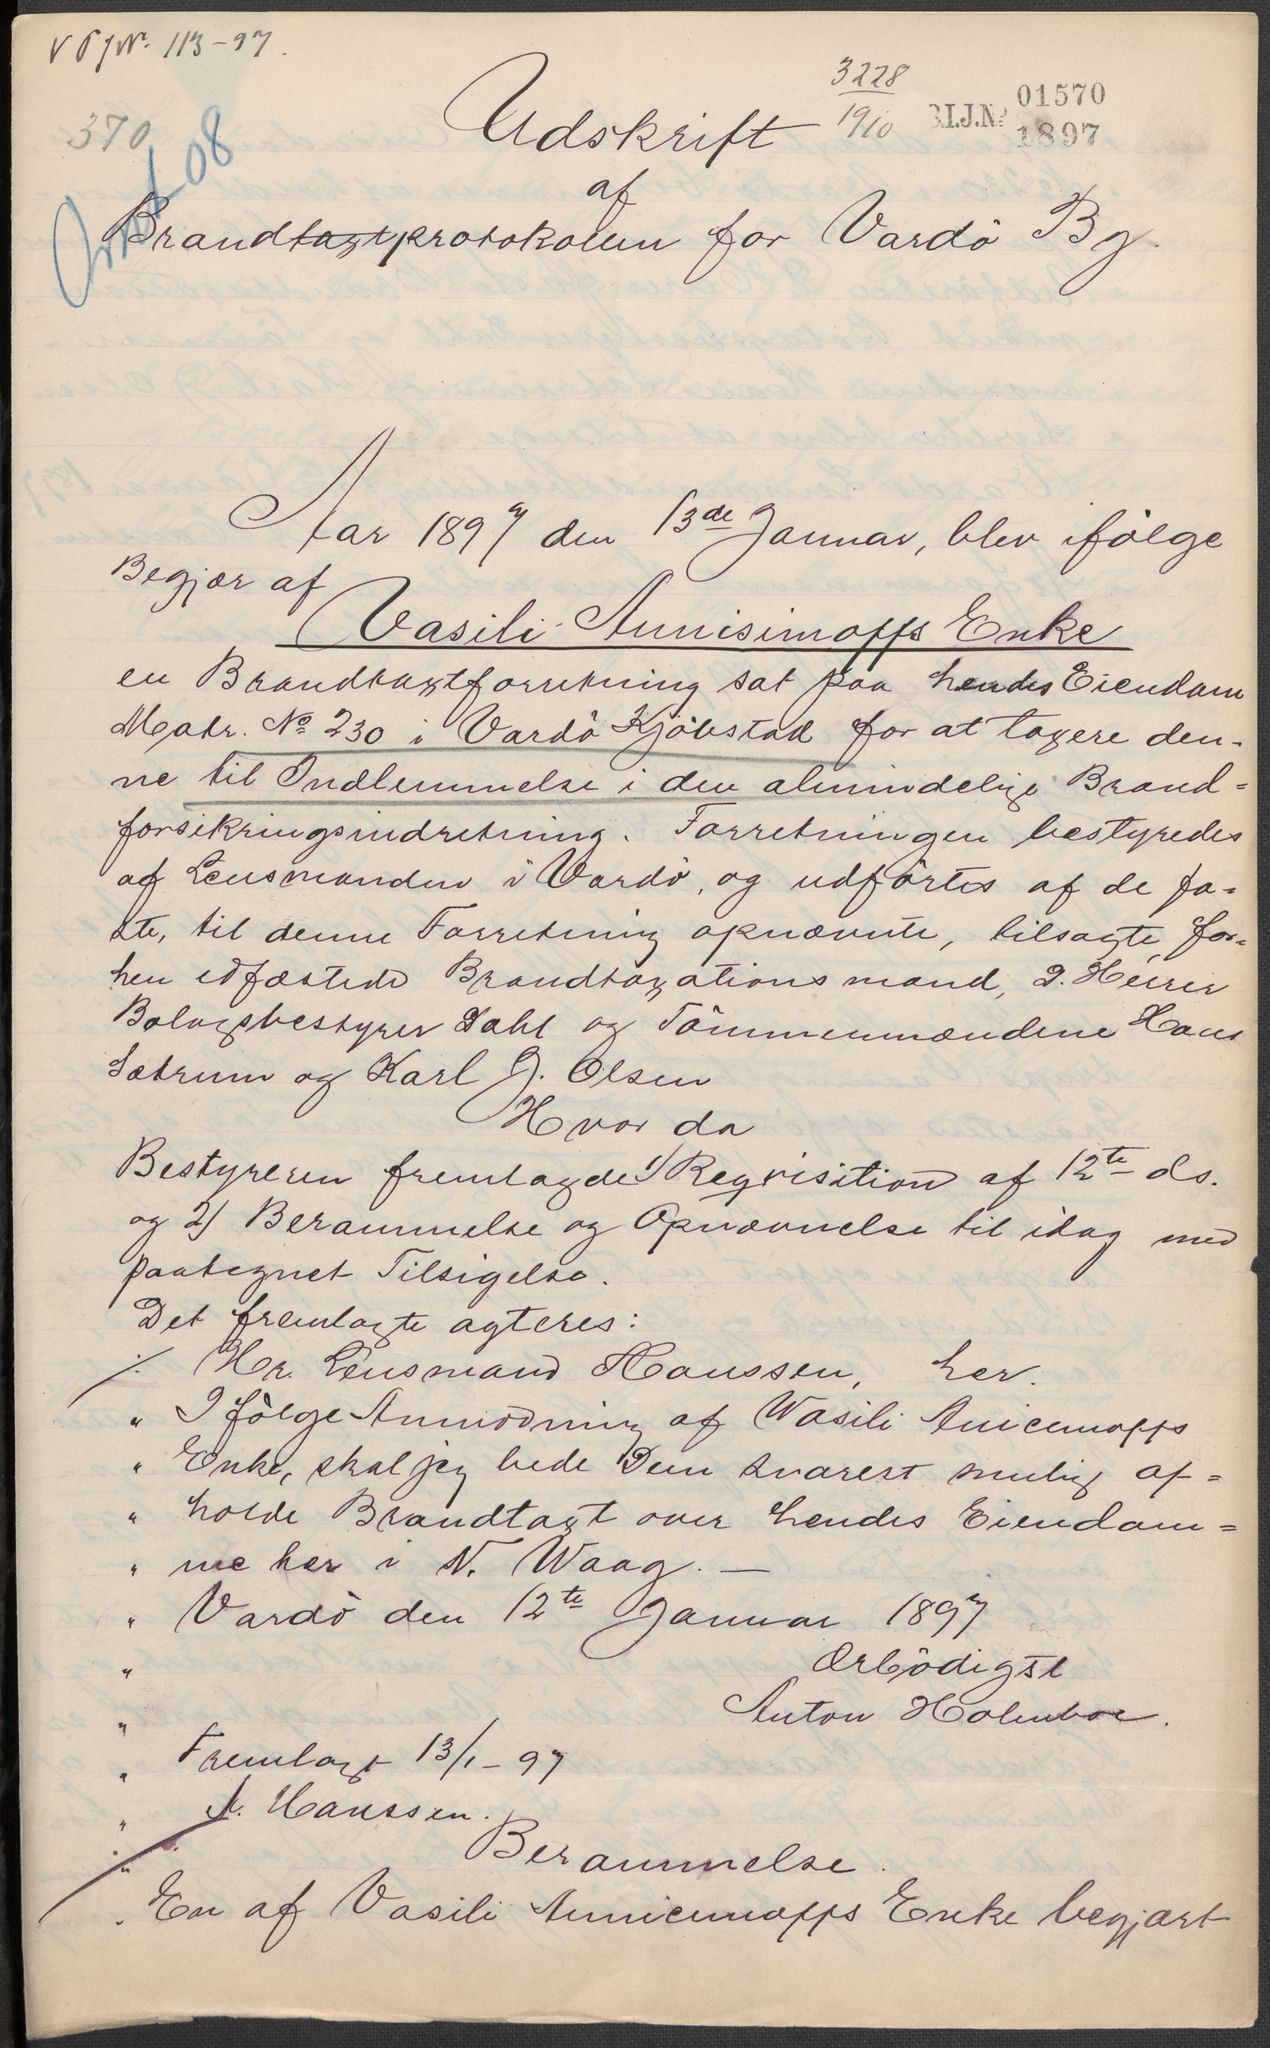 V P J Nr. 113-97.
3228
1910
B.I.J.No 01570
1897
370
Udskrift
af
Brandtaxtprotokolen for Vardö By.
Aar 1897 den 13de Januar, blev ifölge
Begjær af
Vasili Annisimoffs Enke
en Brandtaxtforretning sat paa hendes Eiendom
Matr. No 230 i Vardö Kjöbstad for at taxere den-
ne til Indlemmelse i den almindelige Brand-
forsikringsindretning. Forretningen bestyredes
af Lensmanden i Vardö, og udförtes af de fa-
ste, til denne Forretning opnævnte, tilsagte, for-
hen edfæstede Brandtaxationsmænd, D. Herrer
Bolagsbestyrer Dahl og Tömmermændene Hans
Sætrum og Karl J. Olsen
Hvor da
Bestyreren fremlagde 1) Reqvisition af 12te ds.
og 2) Berammelse og Opnævnelse til idag med
paategnet Tilsigelse.
Det fremlagte agteres:
./. Hr. Lensmand Hanssen, her.
" Ifölge Anmodning af Wasili Anicemoffs
" Enke, skal jeg bede Dem snarest mulig af-
" holde Brandtaxt over hendes Eiendom-
" me her i N. Waag. —
" Vardö den 12te Januar 1897
" Ærbödigst
" Anton Holmboe.
" Fremlagt 13/1-97
" A. Hanssen.
" Berammelse.
" En af Vasili Annicemoffs Enke begjært